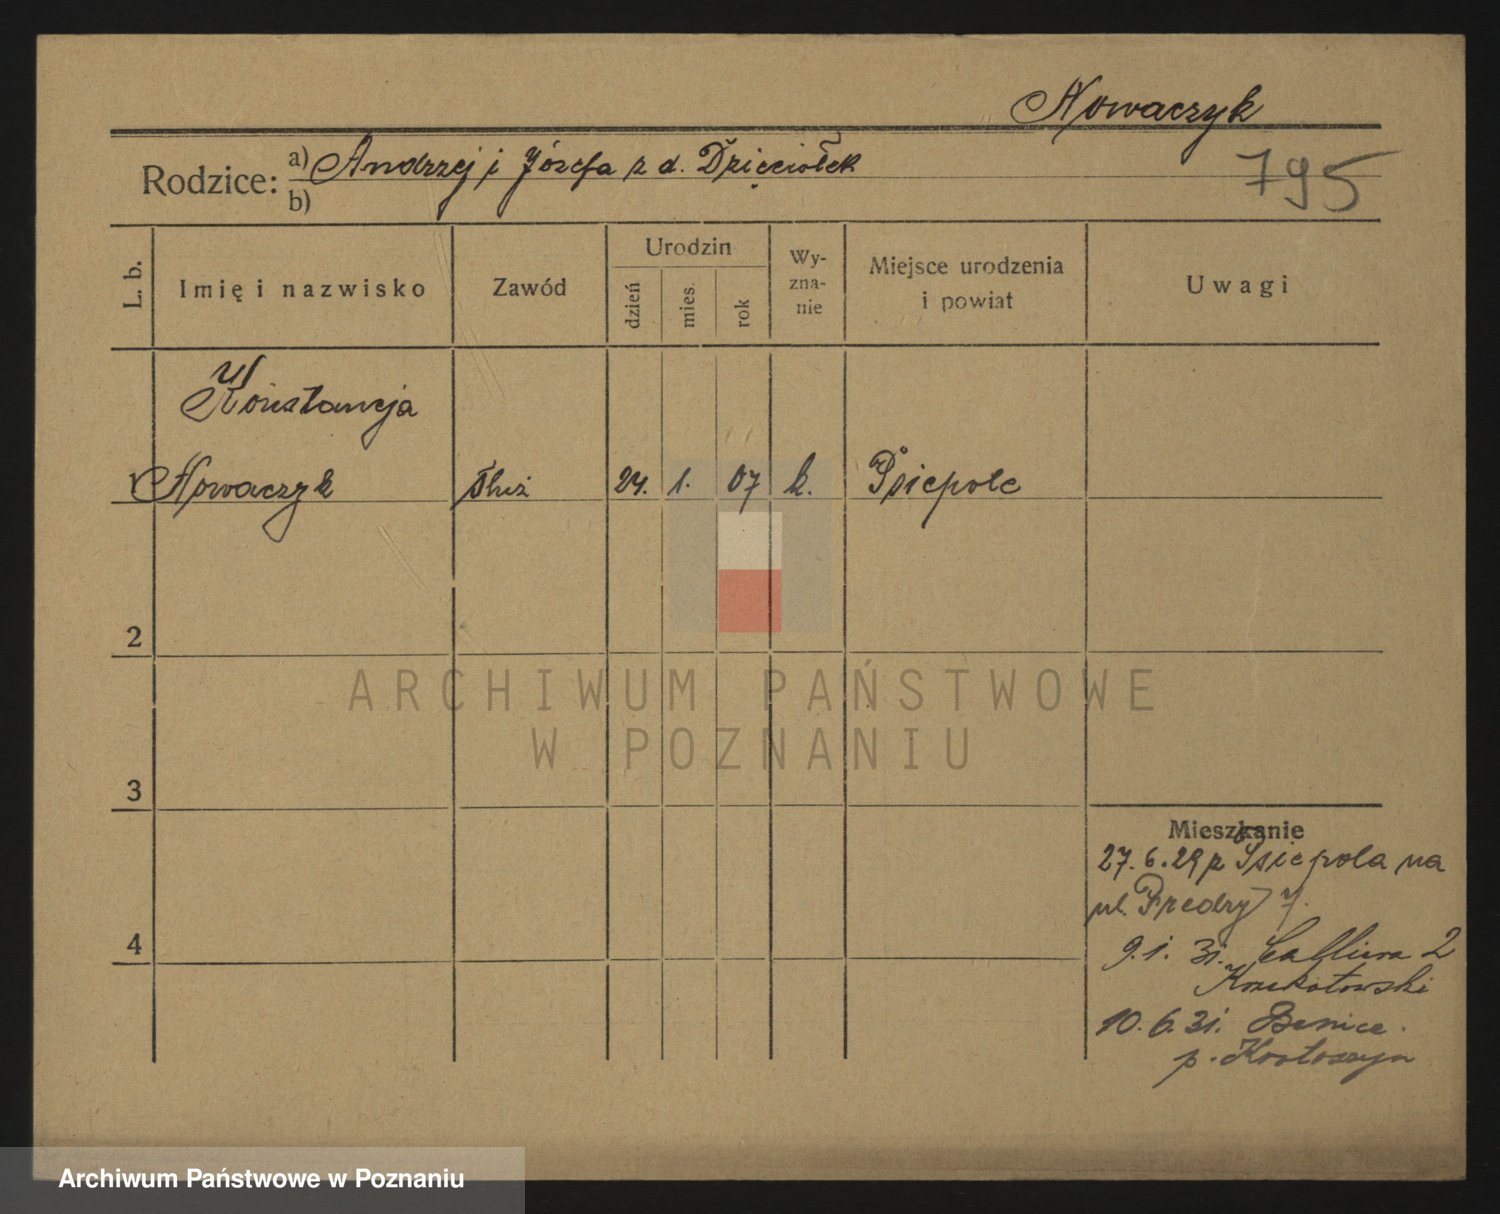 Nowaczyk
Rodzice: a) Andrzej i Józefa z d. Dzięciołek
b)
795
L. b.
Imię i nazwisko
Zawód
Urodzin
dzień
mies.
rok
Wy-
zna-
nie
Miejsce urodzenia
i powiat
Uwagi
Konstancja
1 Nowaczyk służ 24. 1. 07 k. Psiepole
2
3
4
ARCHIWUM PAŃSTWOWE
W POZNANIU
Mieszkanie
27.6.29 z Psiepola na
ul. Fredry 7.
9.1.31. Calliera 2
Krzekotowski
10.6.31. Benice.
p. Krotoszyn
Archiwum Państwowe w Poznaniu